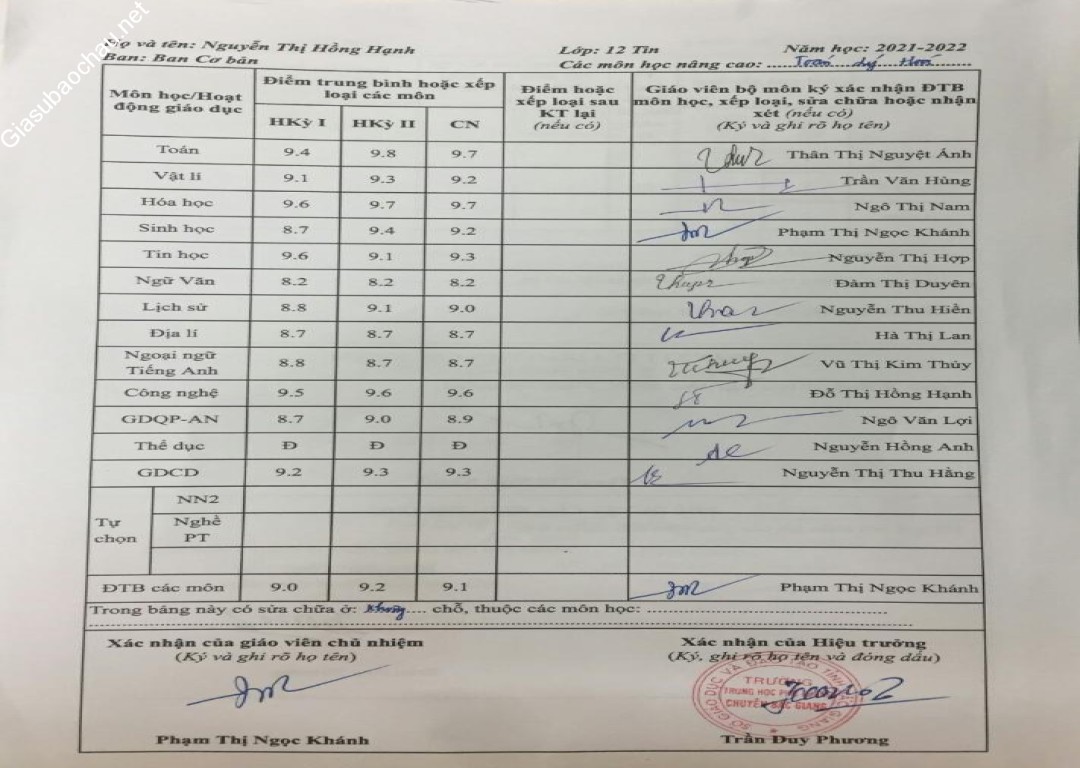 Giasubaochau.net
Họ và tên: Nguyễn Thị Hồng Hạnh Lớp: 12 Tin Năm học: 2021-2022
Ban: Ban Cơ bản Các môn học nâng cao: Toán Lý Hoá
Môn học/Hoạt động giáo dục
Điểm trung bình hoặc xếp loại các môn
HKỳ I HKỳ II CN
Điểm hoặc xếp loại sau KT lại (nếu có)
Giáo viên bộ môn ký xác nhận ĐTB môn học, xếp loại, sửa chữa hoặc nhận xét (nếu có)
(Ký và ghi rõ họ tên)
Toán 9.4 9.8 9.7 Thân Thị Nguyệt Ánh
Vật lí 9.1 9.3 9.2 Trần Văn Hùng
Hóa học 9.6 9.7 9.7 Ngô Thị Nam
Sinh học 8.7 9.4 9.2 Phạm Thị Ngọc Khánh
Tin học 9.6 9.1 9.3 Nguyễn Thị Hợp
Ngữ Văn 8.2 8.2 8.2 Đàm Thị Duyên
Lịch sử 8.8 9.1 9.0 Nguyễn Thu Hiền
Địa lí 8.7 8.7 8.7 Hà Thị Lan
Ngoại ngữ
Tiếng Anh 8.8 8.7 8.7 Vũ Thị Kim Thủy
Công nghệ 9.5 9.6 9.6 Đỗ Thị Hồng Hạnh
GDQP-AN 8.7 9.0 8.9 Ngô Văn Lợi
Thể dục Đ Đ Đ Nguyễn Hồng Anh
GDCD 9.2 9.3 9.3 Nguyễn Thị Thu Hằng
Tự chọn
NN2
Nghề PT
ĐTB các môn 9.0 9.2 9.1 Phạm Thị Ngọc Khánh
Trong bảng này có sửa chữa ở: Không.... chỗ, thuộc các môn học: ........
Xác nhận của giáo viên chủ nhiệm
(Ký và ghi rõ họ tên)
Phạm Thị Ngọc Khánh
Xác nhận của Hiệu trưởng
(Ký, ghi rõ họ tên và đóng dấu)
TRƯỜNG
TRUNG HỌC
CHUYÊN BẮC GIANG
Trần Duy Phương